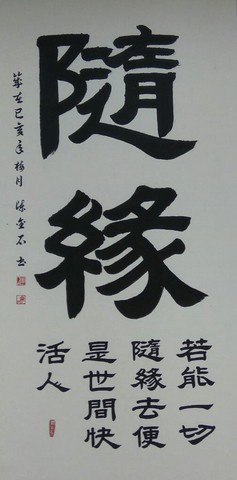 隨緣
若能一切
隨緣去便
是世間快
活人
在己亥年梅月 金石書